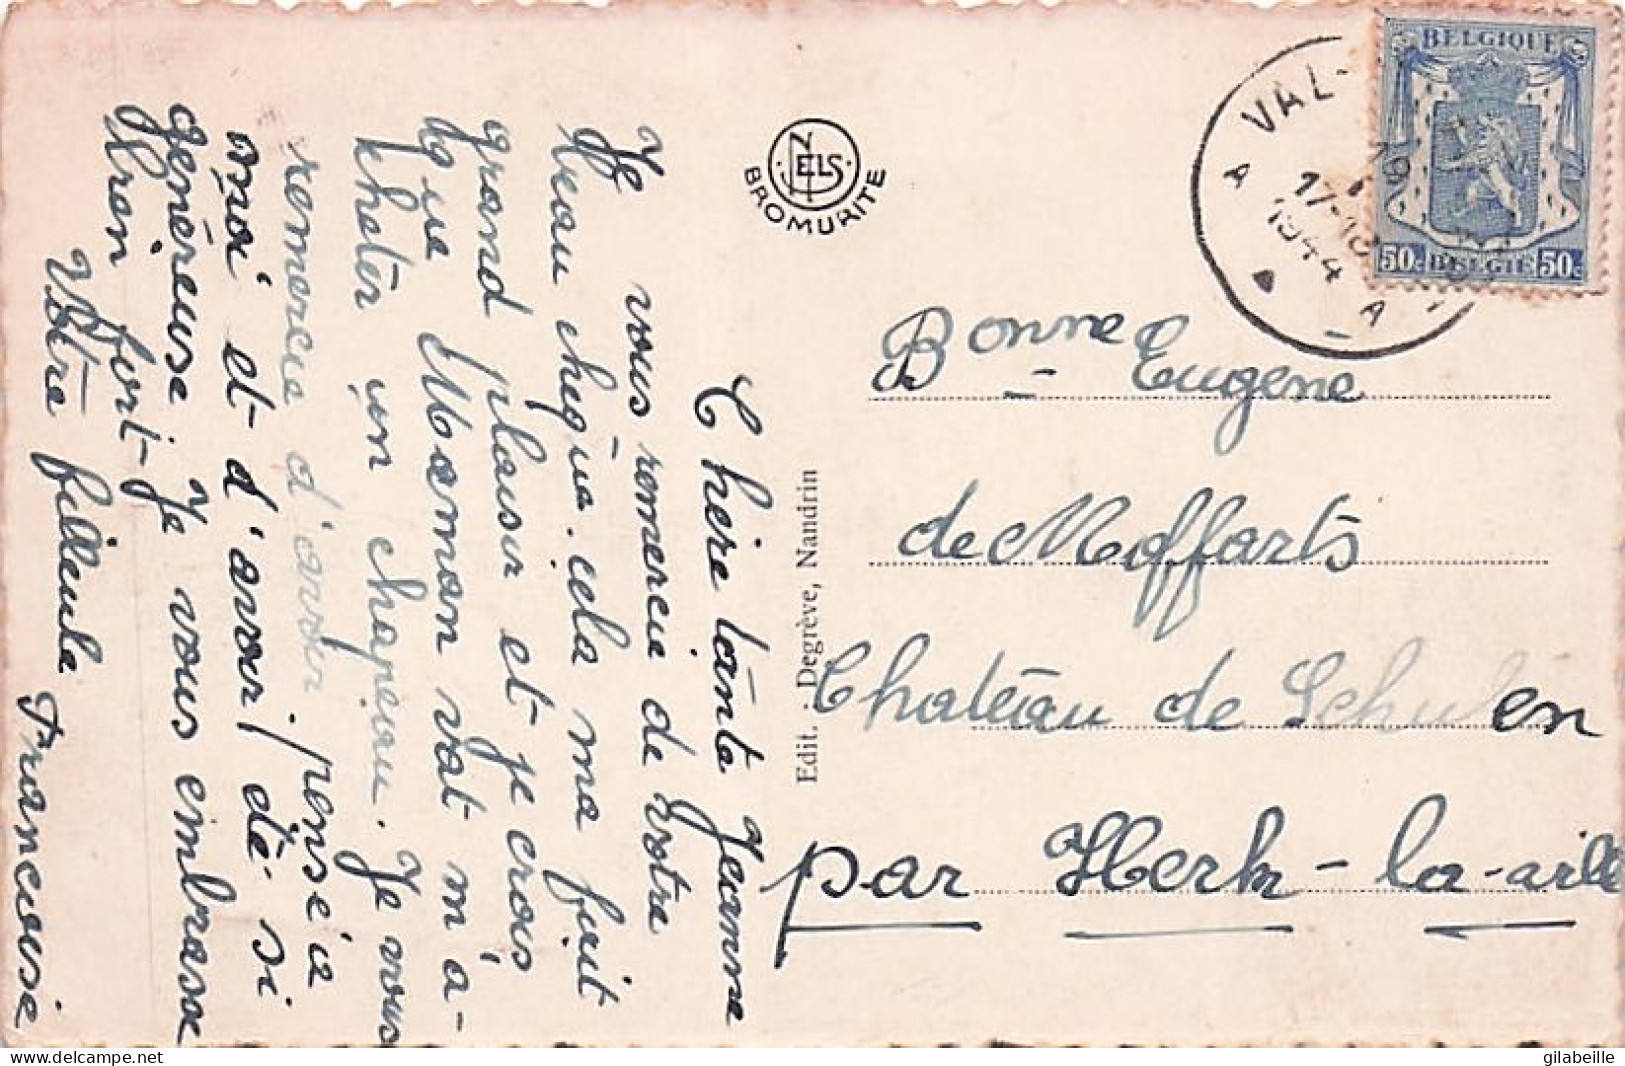 Chère tante Jeanne
Je vous remercie de votre
beau chèque. cela me fait
grand plaisir et je crois
que Maman vat m'a-
cheter un chapeau. Je vous
remercie d'avoir pensé a
moi et d'avoir été si
généreuse Je vous embrasse
bien fort
Votre filleule Francoise
NELS
BROMURITE
Edit. Degrève, Nandrin
BELGIQUE
50c BELGIE 50c
VAL-
17-18
1944
A A
Bonne Eugene
de Moffarts
Chateau de Schulen
par Herk-la-ville
delcampe.net
gilabeille